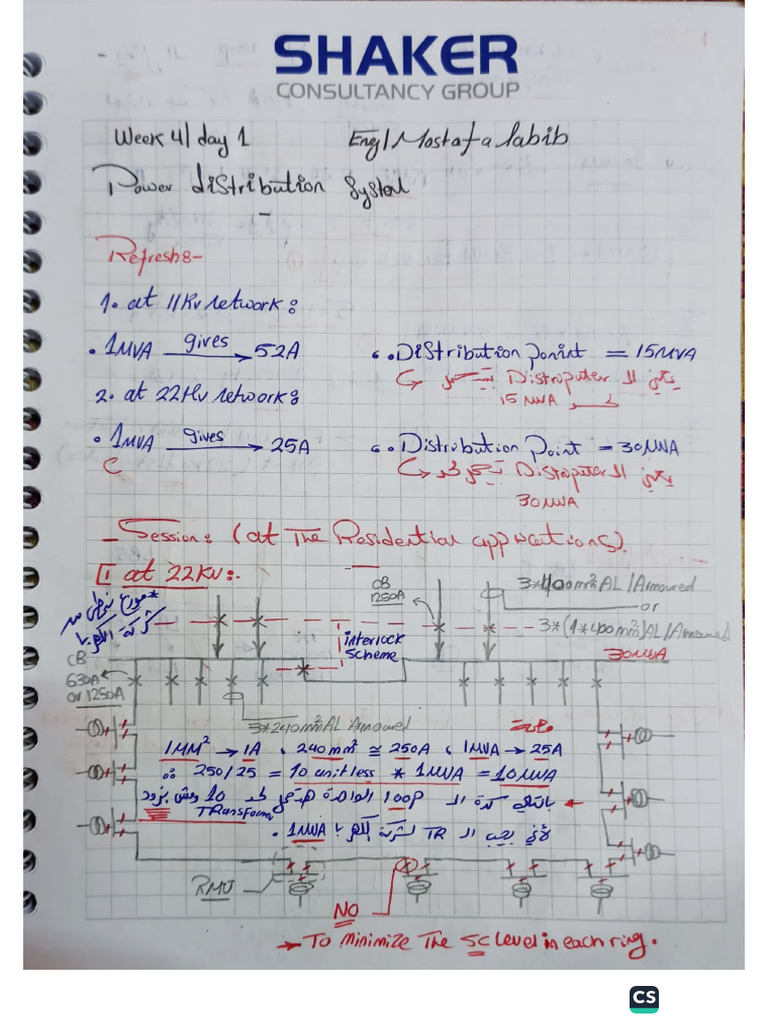 SHAKER
CONSULTANCY GROUP
Week 4/ day 1 Eng/ Mostafa labib
Power distribution System
Refresh:-
1. at 11Kv network:
. 1MVA gives 52A
. Distribution Ponint = 15MVA
يعني الـ Distroputer بيتحمل
15 MVA
2. at 22Kv network:
. 1MVA gives 25A
. Distribution Point = 30MVA
يعني الـ Distroputer
30MVA
- Session: (at The Residential applications).
1 at 22KV:.
CB
1250A
3*400mm² AL/Armoured
or
3*(1*400mm²)AL/Armoured
interlock
scheme
30MVA
CB
630A
or 1250A
3*240mm² AL Armoured
1MM² → 1A , 240mm² ≅ 250A , 1MVA → 25A
∴ 250/25 = 10 unitless * 1MVA = 10MVA
10 الواحدة loop بالتالي كدة الـ
TRansformer
1MVA الـ TR
RMU
NO
→ To minimize The SC level in each ring.
CS